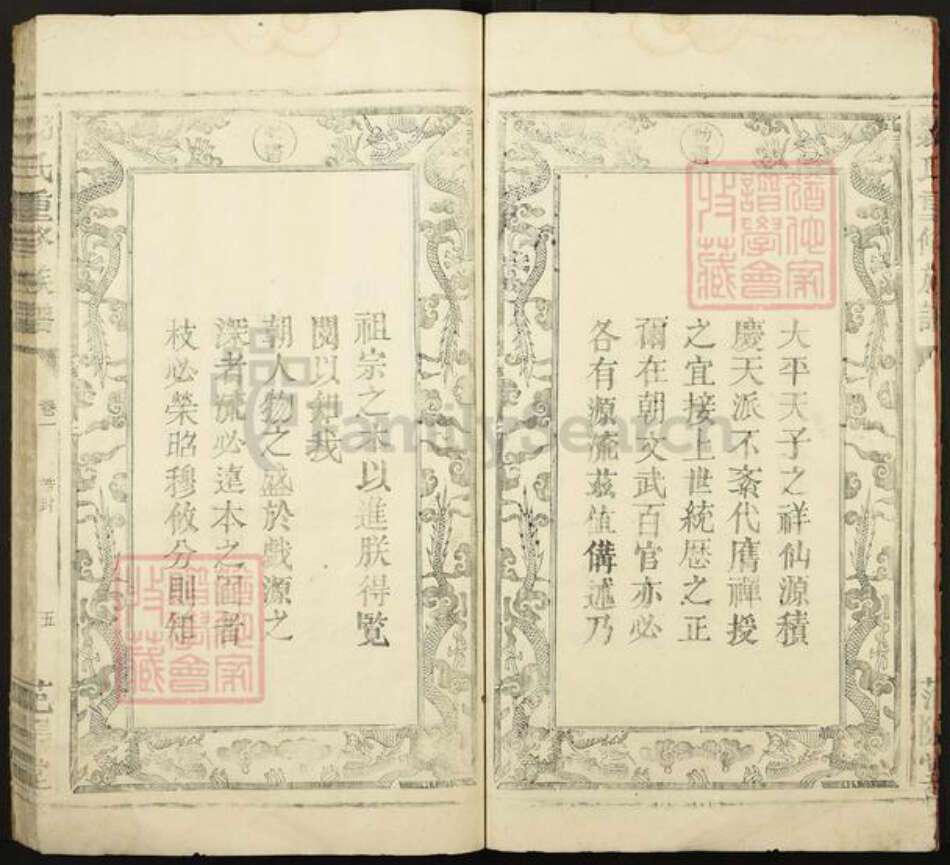 大平天子之祥仙源積
慶天派不紊代膺禪授
之宜接上世統歷之正
爾在朝文武百官亦必
各有源流茲值備述乃
祖宗之 以進朕得覽
閱以知我
朝人物之盛於戲源之
深者流必遠本之固者
枝必榮昭穆攸分則知
氏重修族譜
卷一
五
FamilySearch
譜學會
收藏
譜學會
收藏